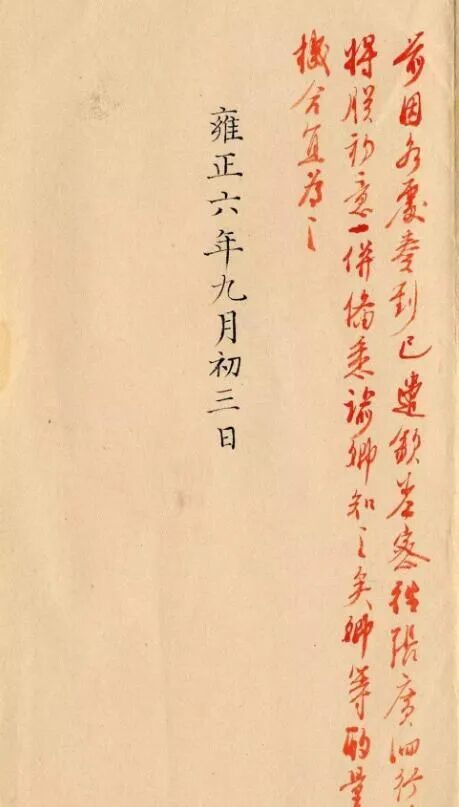 前因各處奏到已遣欽差密往張廣泗行
將朕初意一併備悉諭卿知之矣卿等酌量
機合宜爲之
雍正六年九月初三日